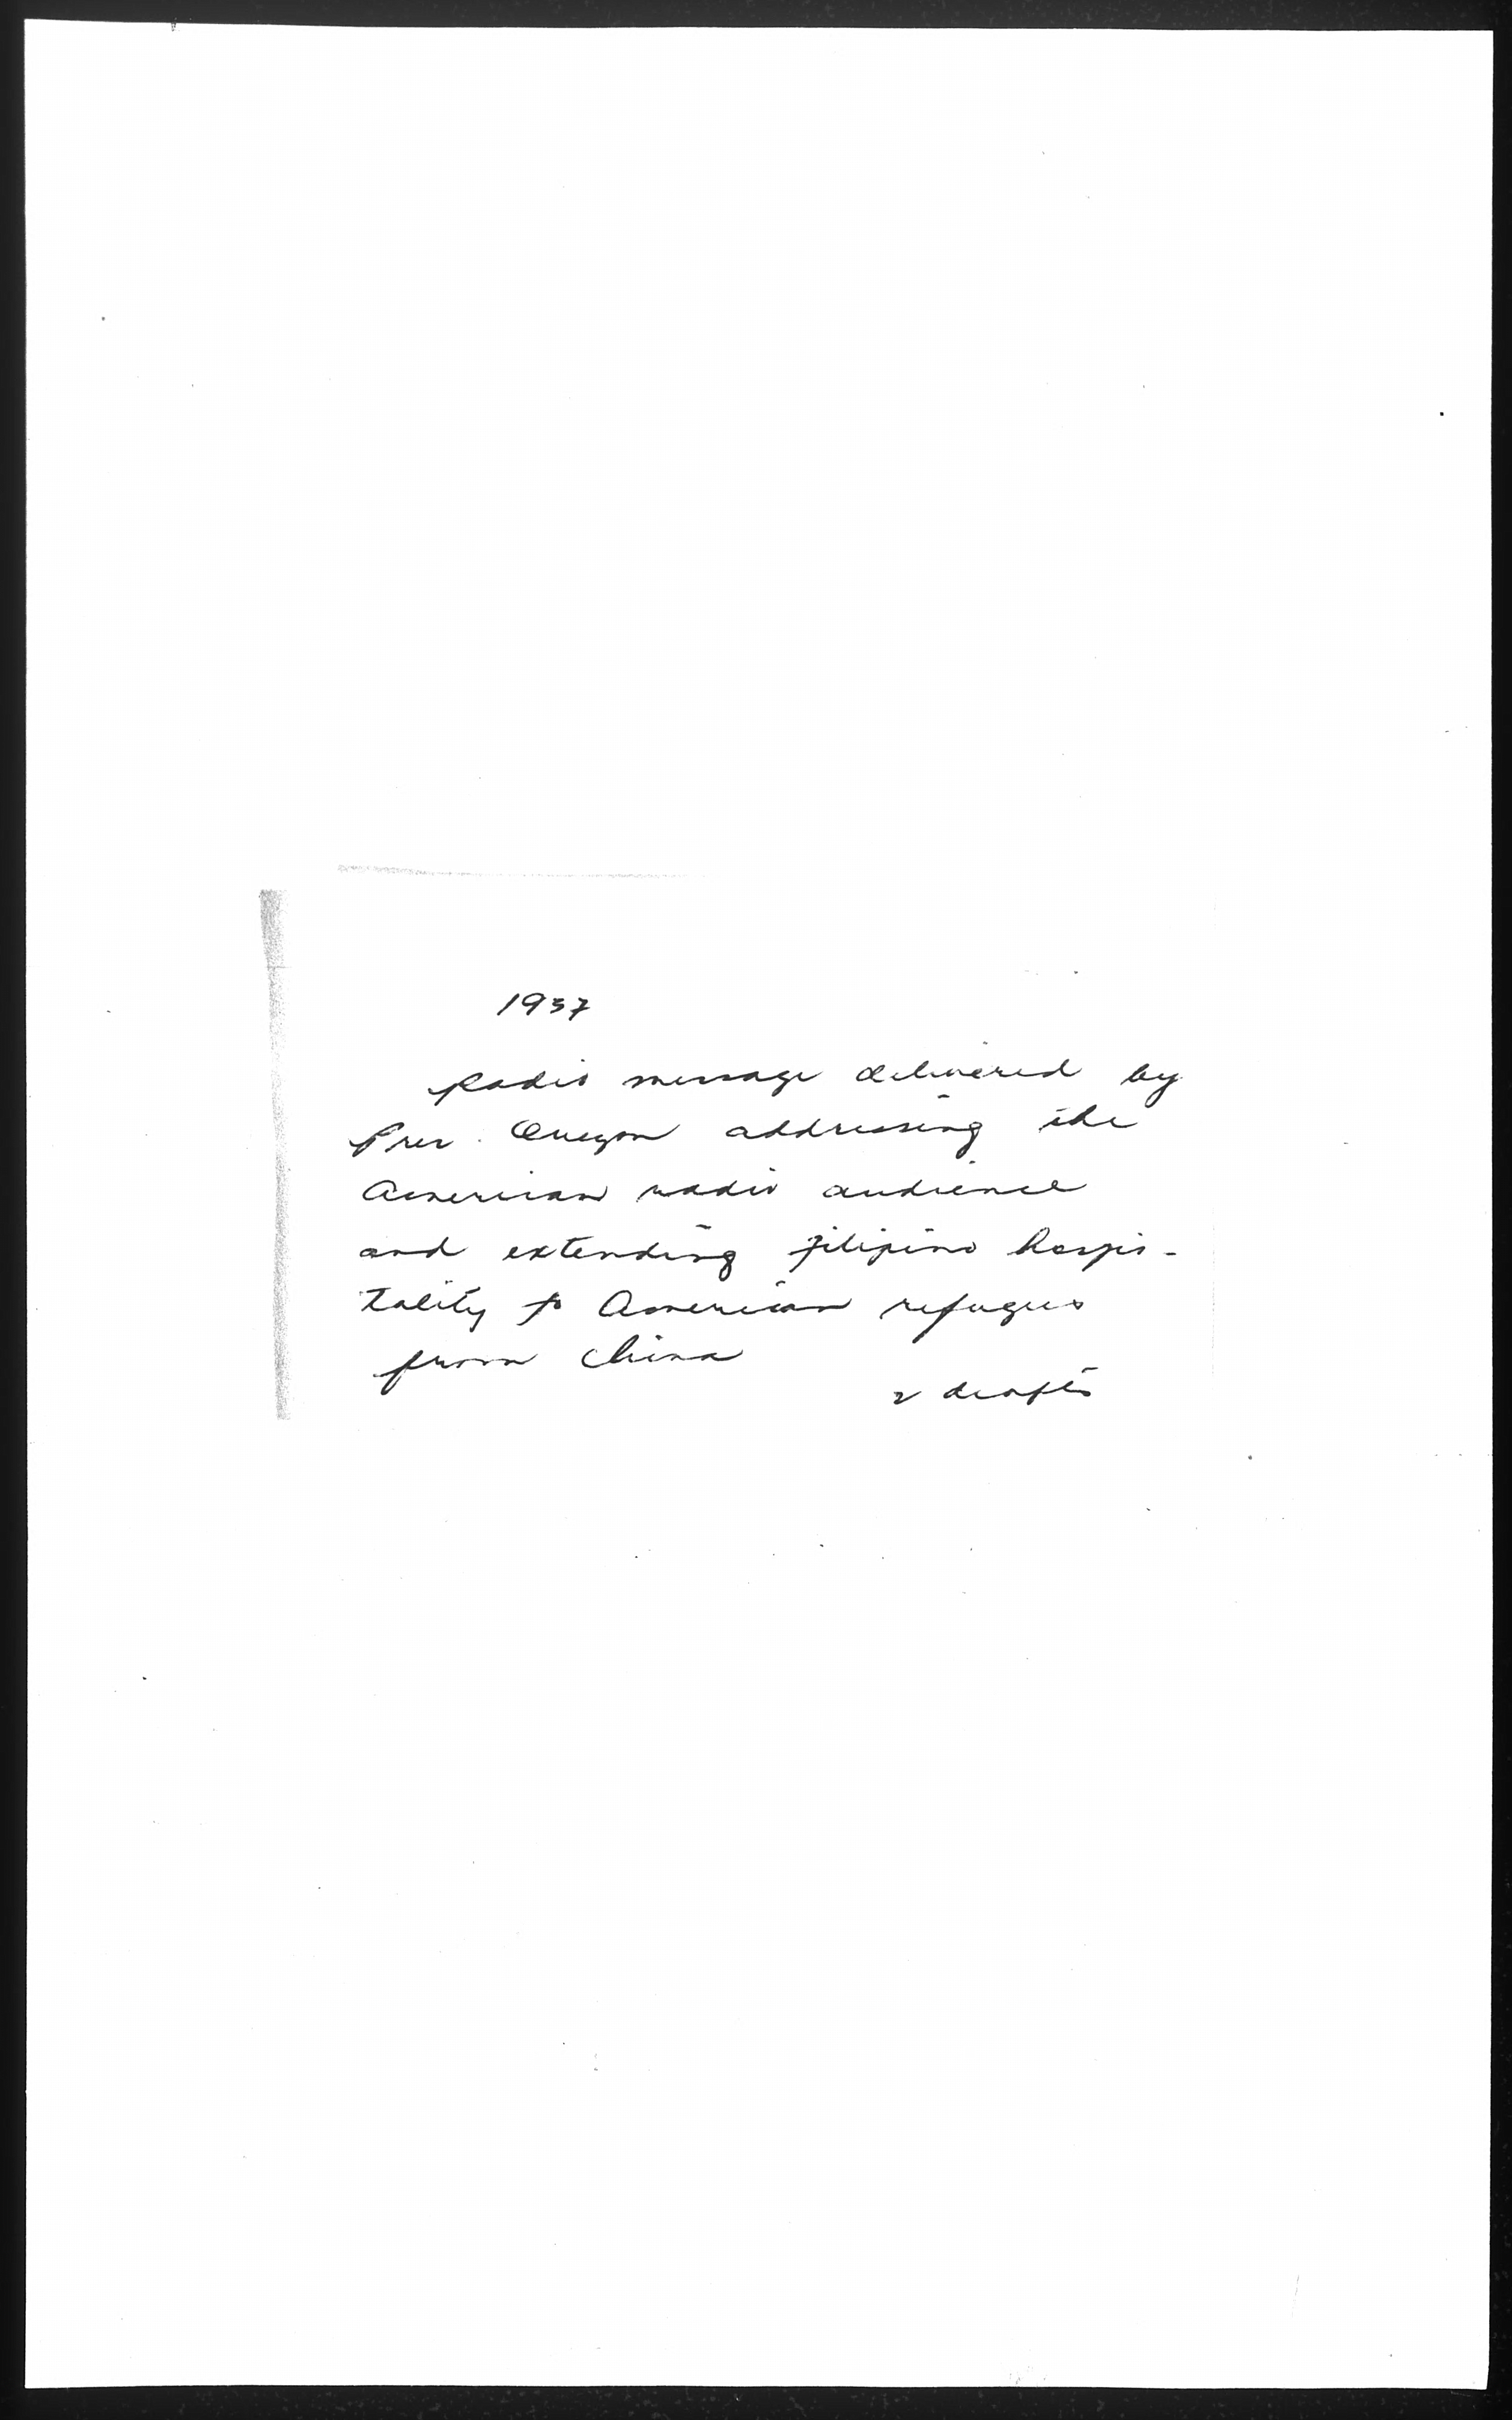 1937
Radio message delivered by
Pres. Quezon addressing the
American radio audience
and extending Filipino hospi-
tality to American refugees
from China
2 drafts